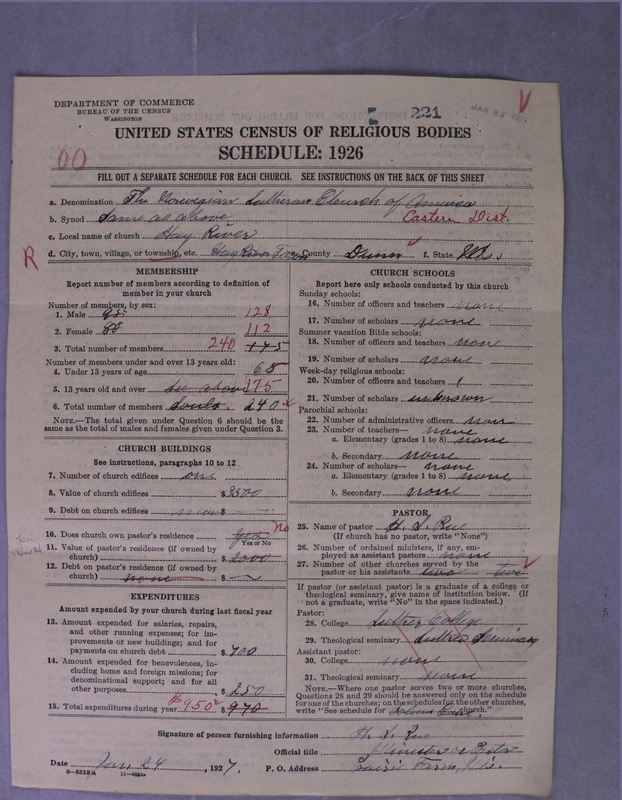 DEPARTMENT OF COMMERCE
BUREAU OF THE CENSUS
WASHINGTON
221
JAN 27
UNITED STATES CENSUS OF RELIGIOUS BODIES
SCHEDULE: 1926
00
FILL OUT A SEPARATE SCHEDULE FOR EACH CHURCH. SEE INSTRUCTIONS ON THE BACK OF THIS SHEET
a. Denomination The Norwegian Lutheran Church of America
b. Synod Same as above Eastern Dist.
c. Local name of church Hay River
R
d. City, town, village, or township, etc. Hay River Town County Dunn f. State Wis.
MEMBERSHIP
Report number of members according to definition of
member in your church
Number of members, by sex:
1. Male 128
2. Female 112
3. Total number of members 240 175
Number of members under and over 13 years old:
4. Under 13 years of age 65
5. 13 years old and over See above 175
6. Total number of members Souls. 240
NOTE.—The total given under Question 6 should be the
same as the total of males and females given under Question 3.
CHURCH BUILDINGS
See instructions, paragraphs 10 to 12
7. Number of church edifices one
8. Value of church edifices $ 3500
9. Debt on church edifices none $
10. Does church own pastor's residence yes No
Yes or No
11. Value of pastor's residence (if owned by
church) $ 2000
12. Debt on pastor's residence (if owned by
church) none $
EXPENDITURES
Amount expended by your church during last fiscal year
13. Amount expended for salaries, repairs,
and other running expenses; for im-
provements or new buildings; and for
payments on church debt $ 700
14. Amount expended for benevolences, in-
cluding home and foreign missions; for
denominational support; and for all
other purposes $ 250
15. Total expenditures during year $950 $ 970
CHURCH SCHOOLS
Report here only schools conducted by this church
Sunday schools:
16. Number of officers and teachers none
17. Number of scholars none
Summer vacation Bible schools:
18. Number of officers and teachers none
19. Number of scholars none
Week-day religious schools:
20. Number of officers and teachers 1
21. Number of scholars unknown
Parochial schools:
22. Number of administrative officers non
23. Number of teachers— none
a. Elementary (grades 1 to 8) none
b. Secondary none
24. Number of scholars— none
a. Elementary (grades 1 to 8) none
b. Secondary none
PASTOR
25. Name of pastor H. S. Rue
(If church has no pastor, write "None")
26. Number of ordained ministers, if any, em-
ployed as assistant pastors none
27. Number of other churches served by the
pastor or his assistants two two
If pastor (or assistant pastor) is a graduate of a college or
theological seminary, give name of institution below. (If
not a graduate, write "No" in the space indicated.)
Pastor:
28. College Luther College
29. Theological seminary Luther Seminary
Assistant pastor:
30. College none
31. Theological seminary none
NOTE.—Where one pastor serves two or more churches,
Questions 28 and 29 should be answered only on the schedule
for one of the churches; on the schedules for the other churches,
write "See schedule for church."
Signature of person furnishing information H. S. Rue
Official title Minister or Pastor
Date Jan. 24, 1927. P. O. Address Prairie Farm, Wis.
8—5518a 11—9024a